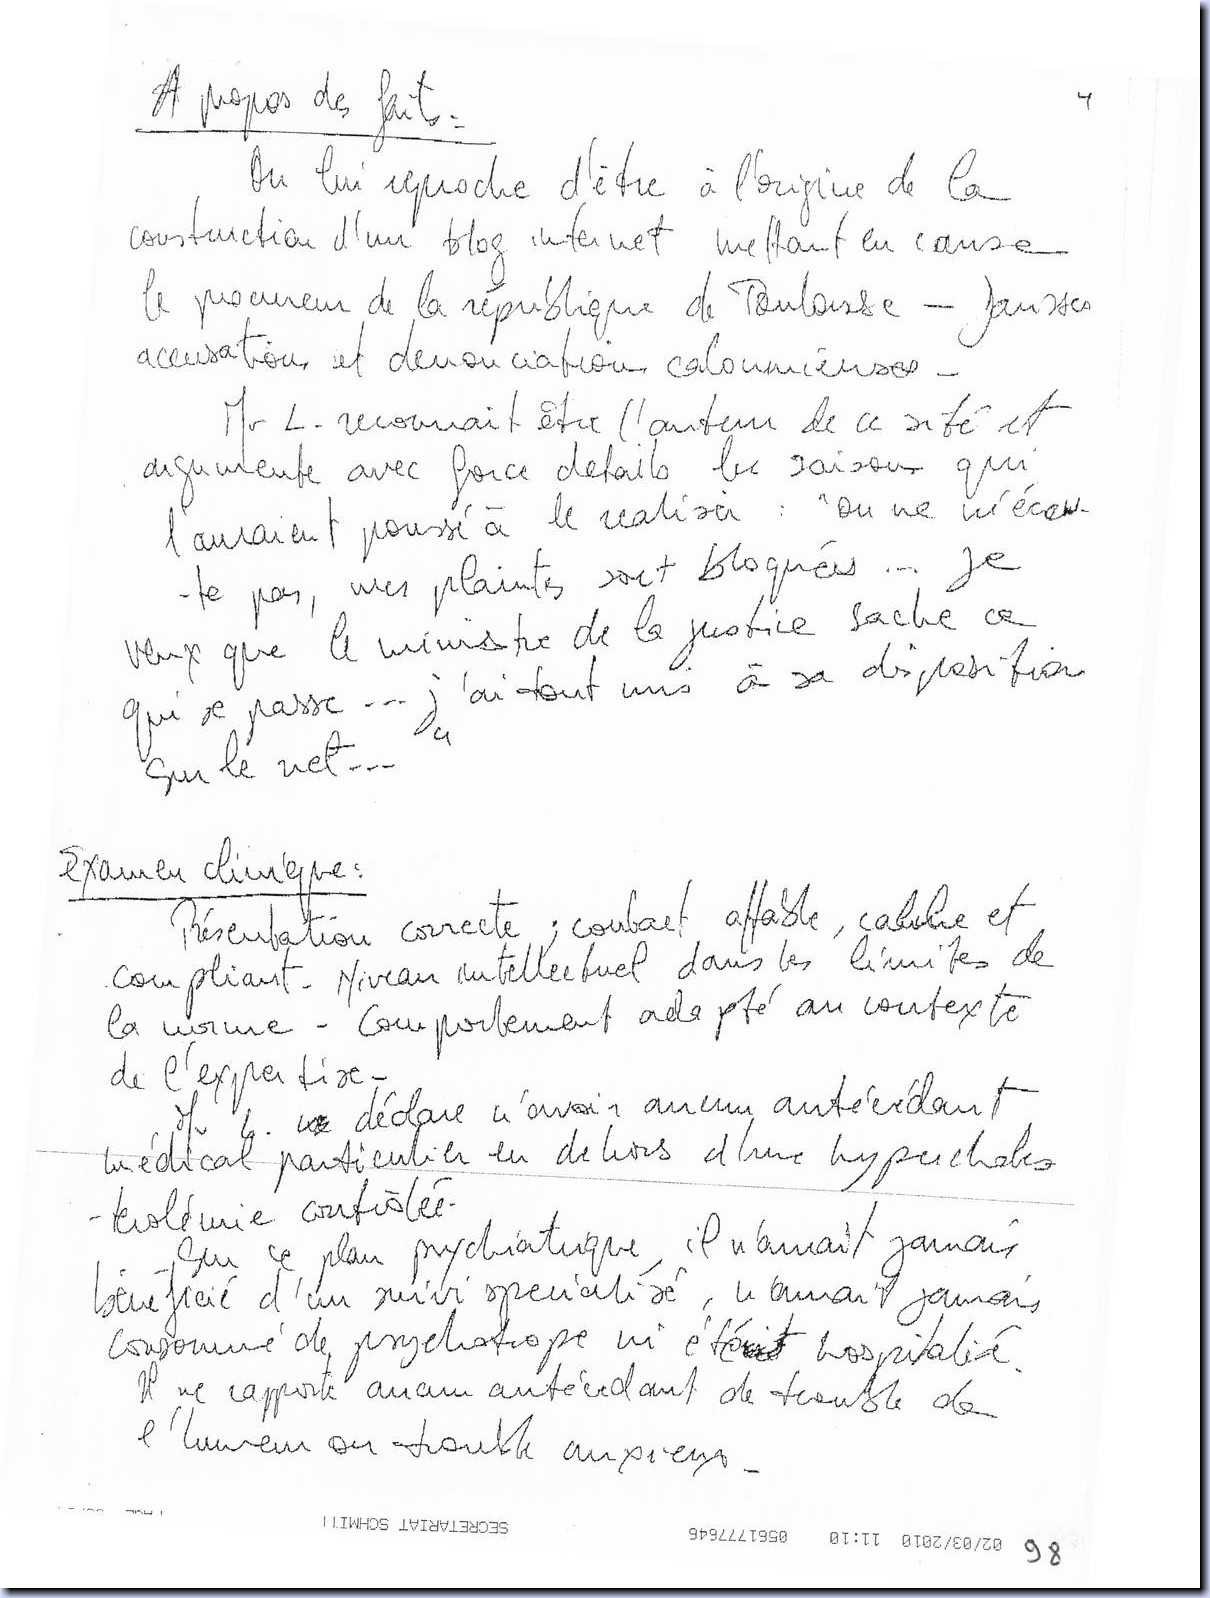 4
A propos des faits :
On lui reproche d'être à l'origine de la
construction d'un blog internet mettant en cause
le procureur de la république de Toulouse – fausses
accusations et denonciations calomnieuses –
Mr L. reconnait être l'auteur de ce site et
argumente avec force details les raisons qui
l'auraient poussé à le realiser : "on ne m'écou-
-te pas, mes plaintes sont bloquées ... je
veux que le ministre de la justice sache ce
qui se passe ... j'ai tout mis à sa disposition
sur le net ... "
Examen clinique :
Présentation correcte ; contact affable, calme et
compliant. Niveau intellectuel dans les limites de
la norme – Comportement adapté au contexte
de l'expertise –
Mr L. déclare n'avoir aucun antécédant
médical particulier en dehors d'une hypercholes
-terolémie contrôlée.
Sur le plan psychiatrique, il n'aurait jamais
bénéficié d'un suivi specialisé, n'aurait jamais
consommé de psychotrope ni été hospitalisé.
Il ne rapporte aucun antécédant de trouble de
l'humeur ou trouble anxieux –
SECRETARIAT SCHMITT
0561777646
02/03/2010 11:10
98